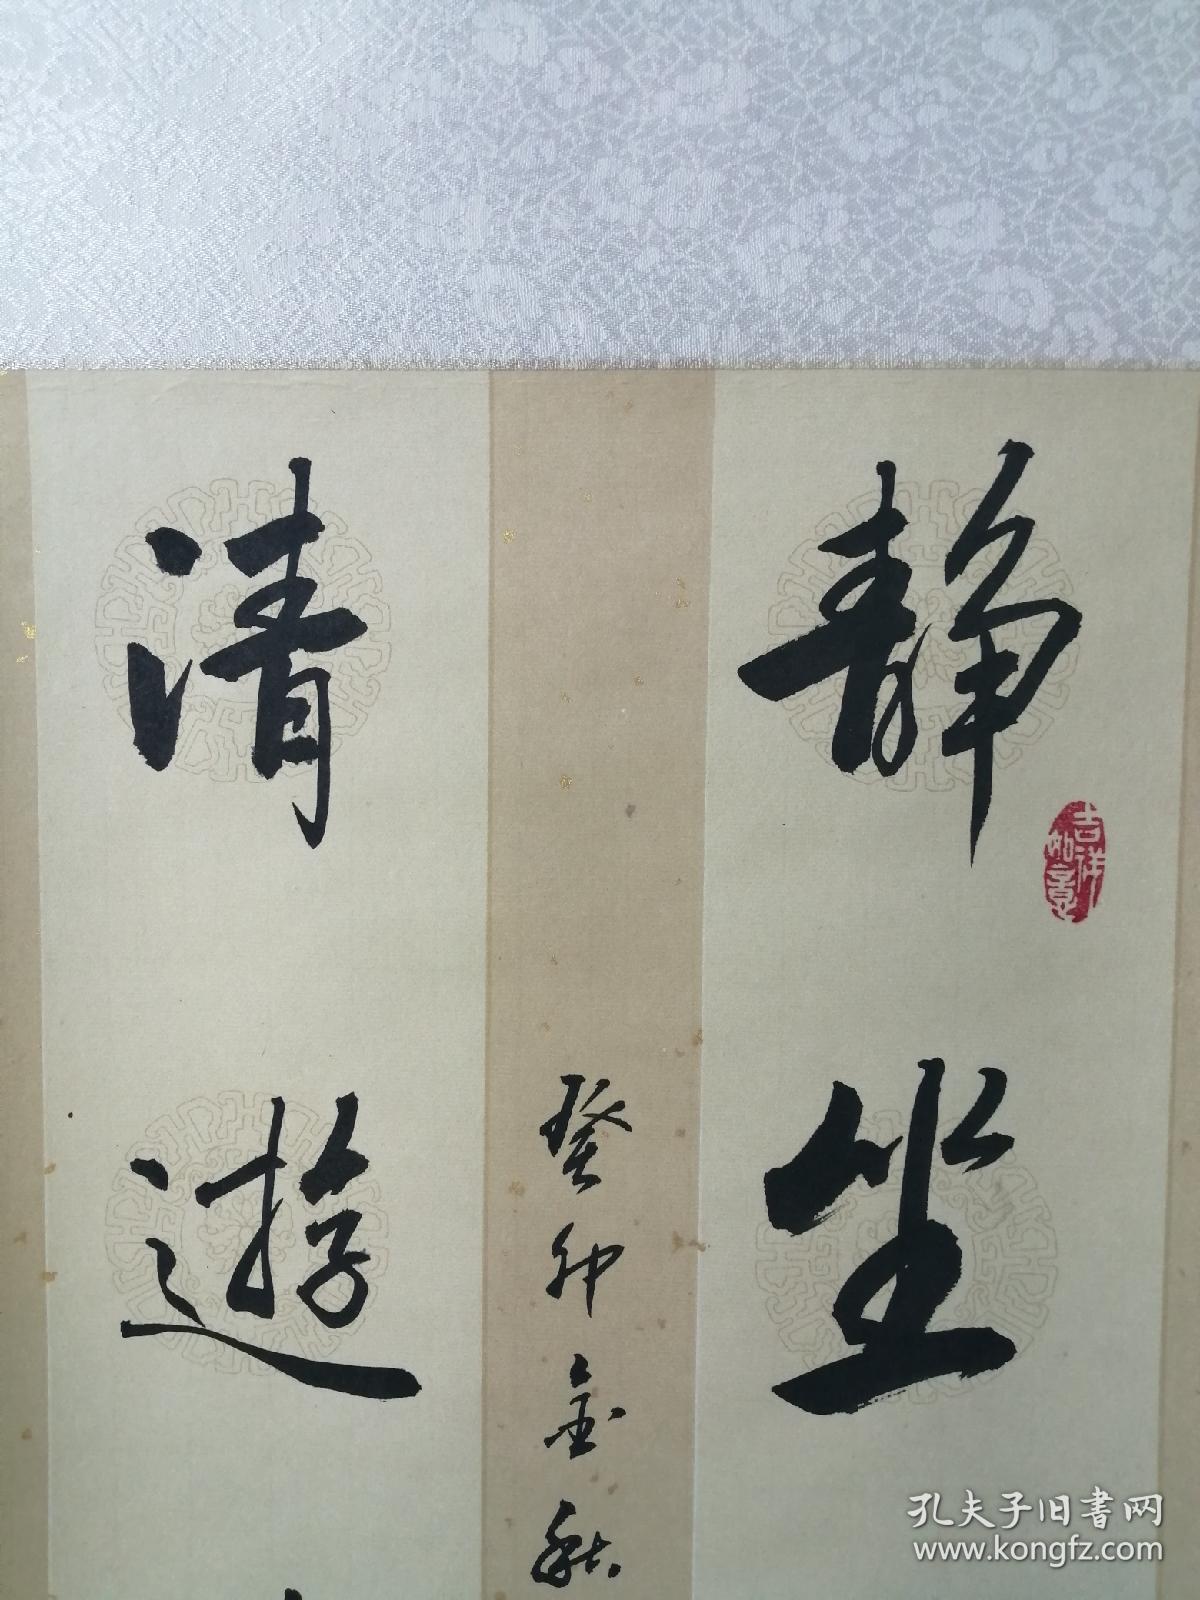 静坐
吉祥
如意
癸卯金秋
清遊
孔夫子旧书网
www.kongfz.com